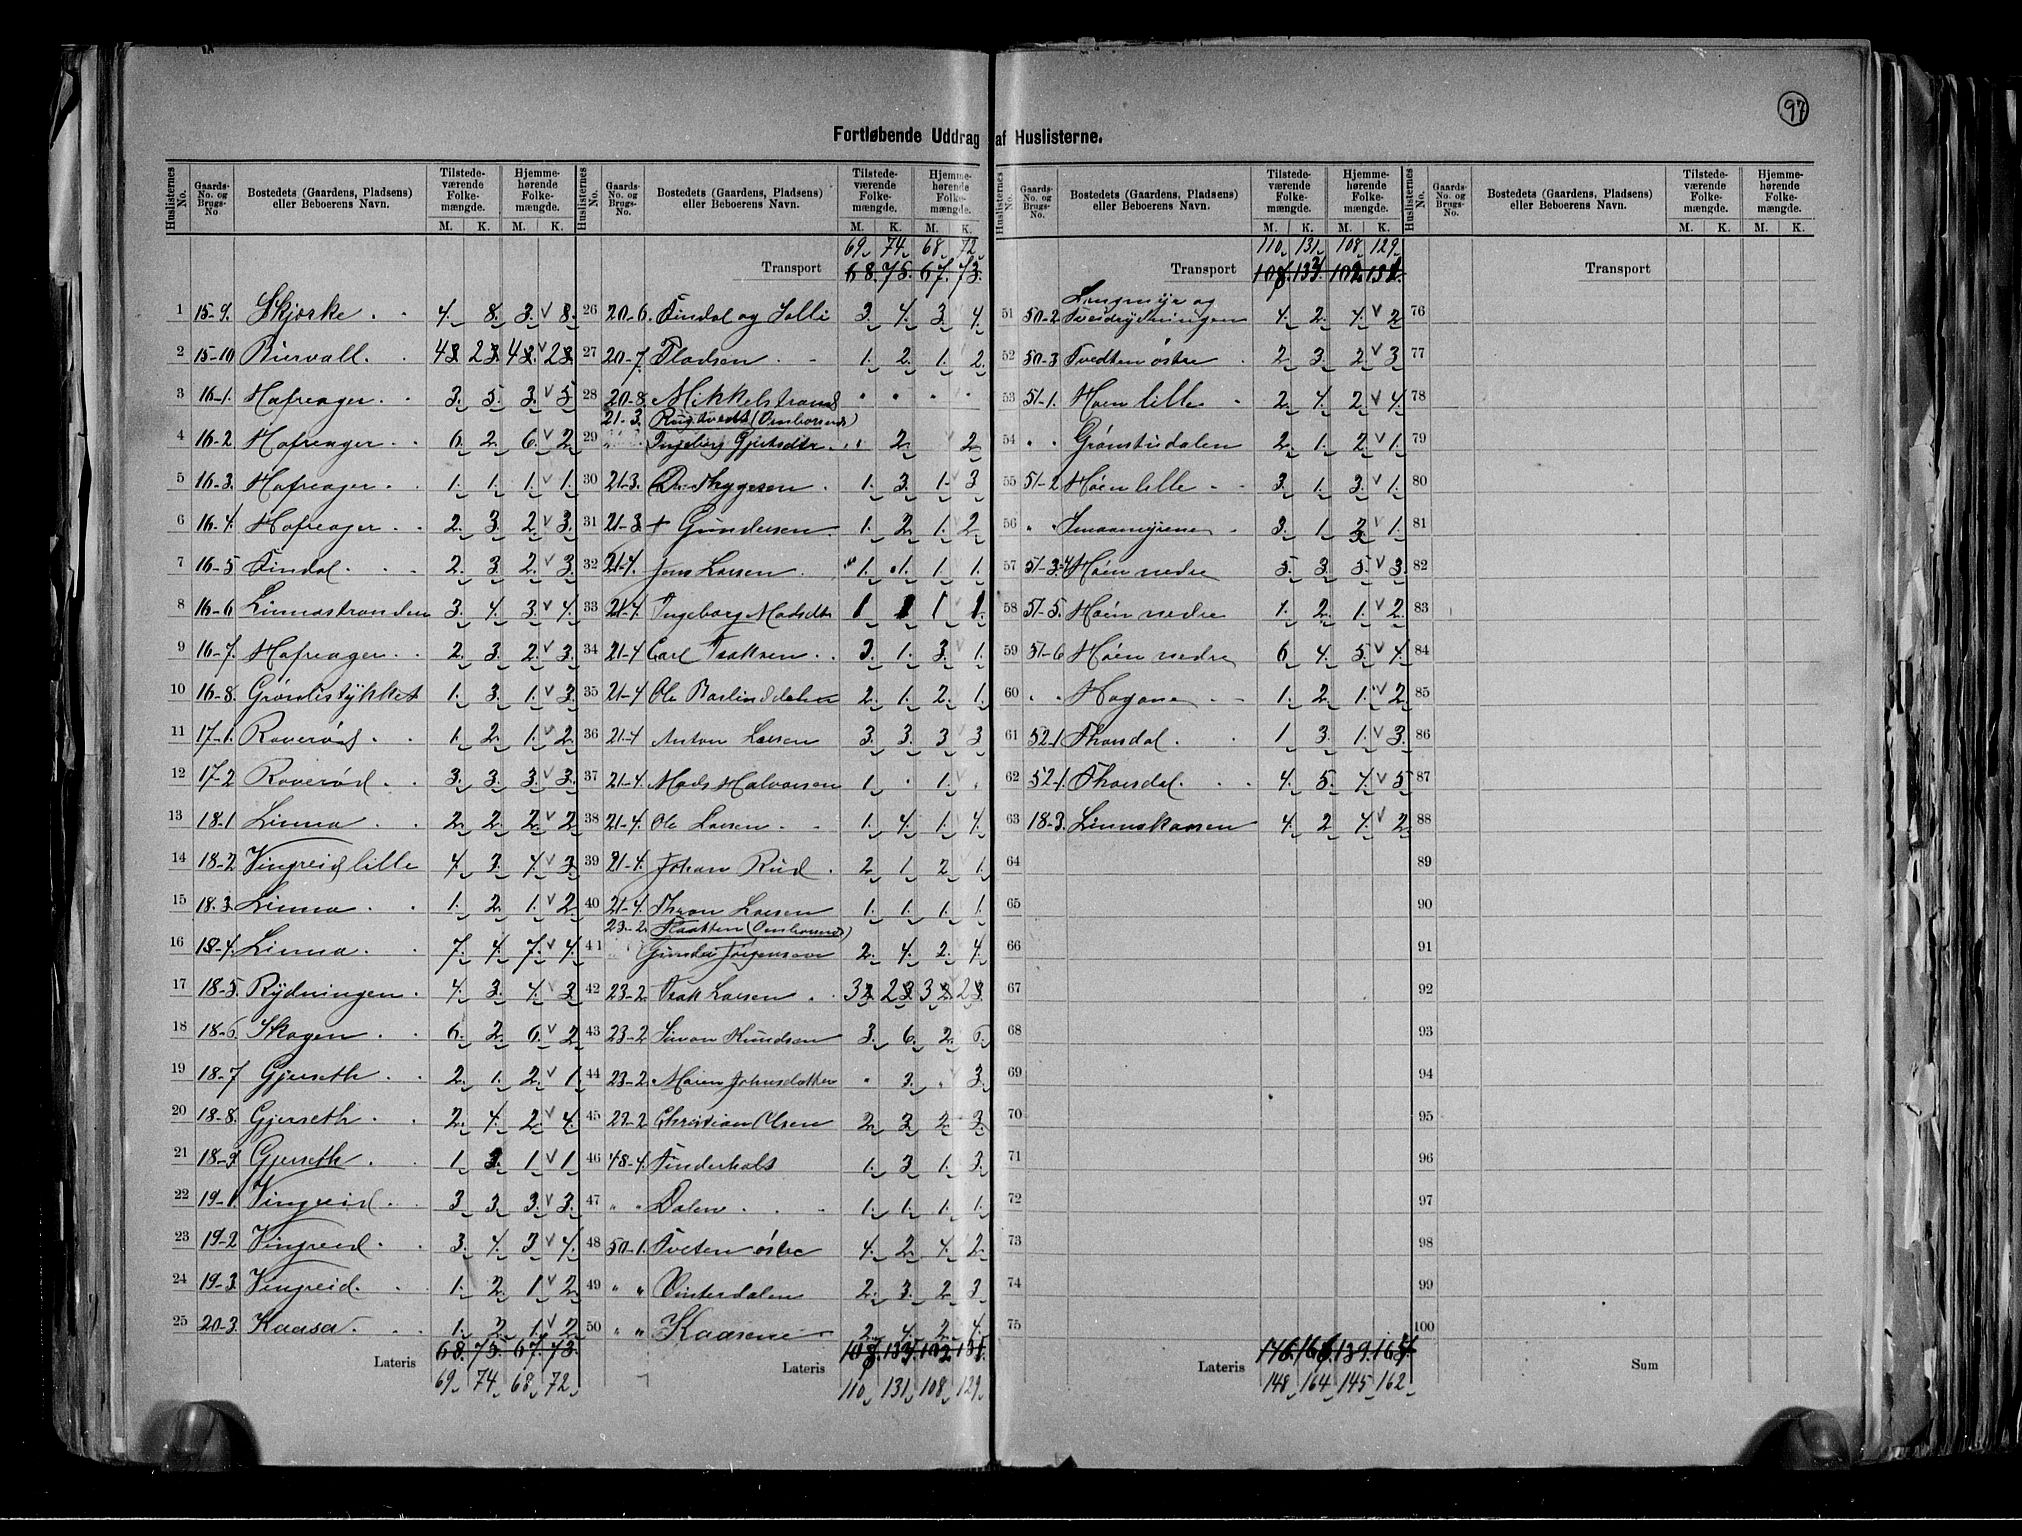 97
Fortløbende Uddrag af Huslisterne.
Huslisternes No. Gaards-No. og Brugs-No. Bostedets (Gaardens, Pladsens) eller Beboerens Navn. Tilstede-værende Folke-mængde. M. K. Hjemme-hørende Folke-mængde. M. K.
1 15-9. Skjørke 4. 8. 3. v 8.
2 15-10 43. 23. 43. v 23.
3 16-1. Hafreager 3. 5. 3. v 5
4 16-2. Hafreager 6. 2. 6. v 2.
5 16-3. Hafreager 1. 1. 1. v 1.
6 16-4. Hafreager 2. 3. 2. v 3.
7 16-5 Findal 2. 3. 2. v 3.
8 16-6 Linnastranden 3. 4. 3. v 4.
9 16-7. Hafreager 2. 3. 2. v 3.
10 16-8. Grønlistykket 1. 3. 1. v 3.
11 17-1. Roverød 1. 2. 1. v 2.
12 17-2 Roverød 3. 3. 3. v 3.
13 18-1 Linna 2. 2. 2. v 2
14 18-2 Vingreid lille 4. 3. 4. v 3.
15 18-3. Linna 1. 2. 1. v 2
16 18-4. Linna 7. 4. 7. v 4.
17 18-5. Rydningen 4. 3. 4. v 3.
18 18-6 Skogen 6. 2. 6. v 2.
19 18-7 Gjerseth 2. 1. 2. v 1.
20 18-8. Gjerseth 2. 4. 2. v 4.
21 18-9 Gjerseth 1. 3. 1. v 1
22 19-1. Vingreid 3 3. 3. v 3.
23 19-2 Vingreid 3. 4. 3 v 4.
24 19-3. Vingreid 1. 2. 1 v 2.
25 20-3. Kaasa 1. 2. 1. v 2.
Lateris 68. 75. 67. 73.
69 74 68 72
69 74 68 72
Transport 68. 75. 67. 73.
26 20-6. Findal og Solli 3. 4. 3. 4.
27 20-7. Pladsen 1. 2. 1. 2.
28 20-8. Mikkelstrand " " " "
21-3. Rugtvedt (Omboende)
29 Ingeborg Gjertsdtr " 2. 2.
30 21-3. Thygesen 1. 3. 1. 3
31 21-3. + Gundersen 1. 2. 1. 2
32 21-4. Jens Larsen 1. 1. 1. 1.
33 21-4. Ingeborg Madsdtr 1 1 1 1.
34 21-4 Carl Isaksen 3. 1. 3. 1.
35 21-4 Ole Barlinddalen 2. 1. 2. 1.
36 21-4 Anton Larsen 3. 3. 3 3
37 21-4. Mads Halvorsen 1. " 1. "
38 21-4. Ole Larsen 1. 4. 1. 4.
39 21-4. Johan Rud 2. 1 2 1.
40 21-4. Thron Larsen 1. 1. 1. 1
23-2. Plaatten (Omboende)
41 Gunder Jørgensen 2. 4. 2. 4.
42 23-2. Isak Larsen 32 23 32 23.
43 23-2 Simon Knudsen 3. 6. 2. 6.
44 23-2. Maren Johnsdatter " 3. " 3.
45 23-2 Christian Olsen 2. 3. 2. 3.
46 48-4. Tinderholt 1. 3 1. 3.
47 " " Dalen 1. 1. 1. 1.
48 50-1. Tveten østre 4. 2. 4. 2.
49 " " Vinterdalen 2. 3. 2. 3
50 " " Kaasene 2. 4. 2. 4.
Lateris
110 131 108 129
110 131 108 129
Transport
Langmyr og
51 50-2 Tveidrydningen 4. 2. 4. v 2
52 50-3 Tvedten østre 2. 3. 2. v 3
53 51-1. Høen lille 2. 4. 2. v 4.
54 " " Grønstudalen 2. 1. 2. v 1.
55 51-2 Høen lille 3. 1. 3. v 1.
56 " Smaamyrene 3. 1 v 1.
57 51-3-4 Høen nedre 5. 3. 5. v 3.
58 51-5. Høen nedre 1. 2. 1. v 2.
59 51-6 Høen nedre 6 4. 5. v 4.
60 " " Hagane 1. 2 1. v 2
61 52-1. Thorsdal 1 3. 1. v 3.
62 52-1. Thorsdal 4. 5. 4. v 5
63 18-3. Linnakaasen 4. 2 4. v 2.
64
65
66
67
68
69
70
71
72
73
74
75
Lateris
148 164 145 162
Transport
76
77
78
79
80
81
82
83
84
85
86
87
88
89
90
91
92
93
94
95
96
97
98
99
100
Sum